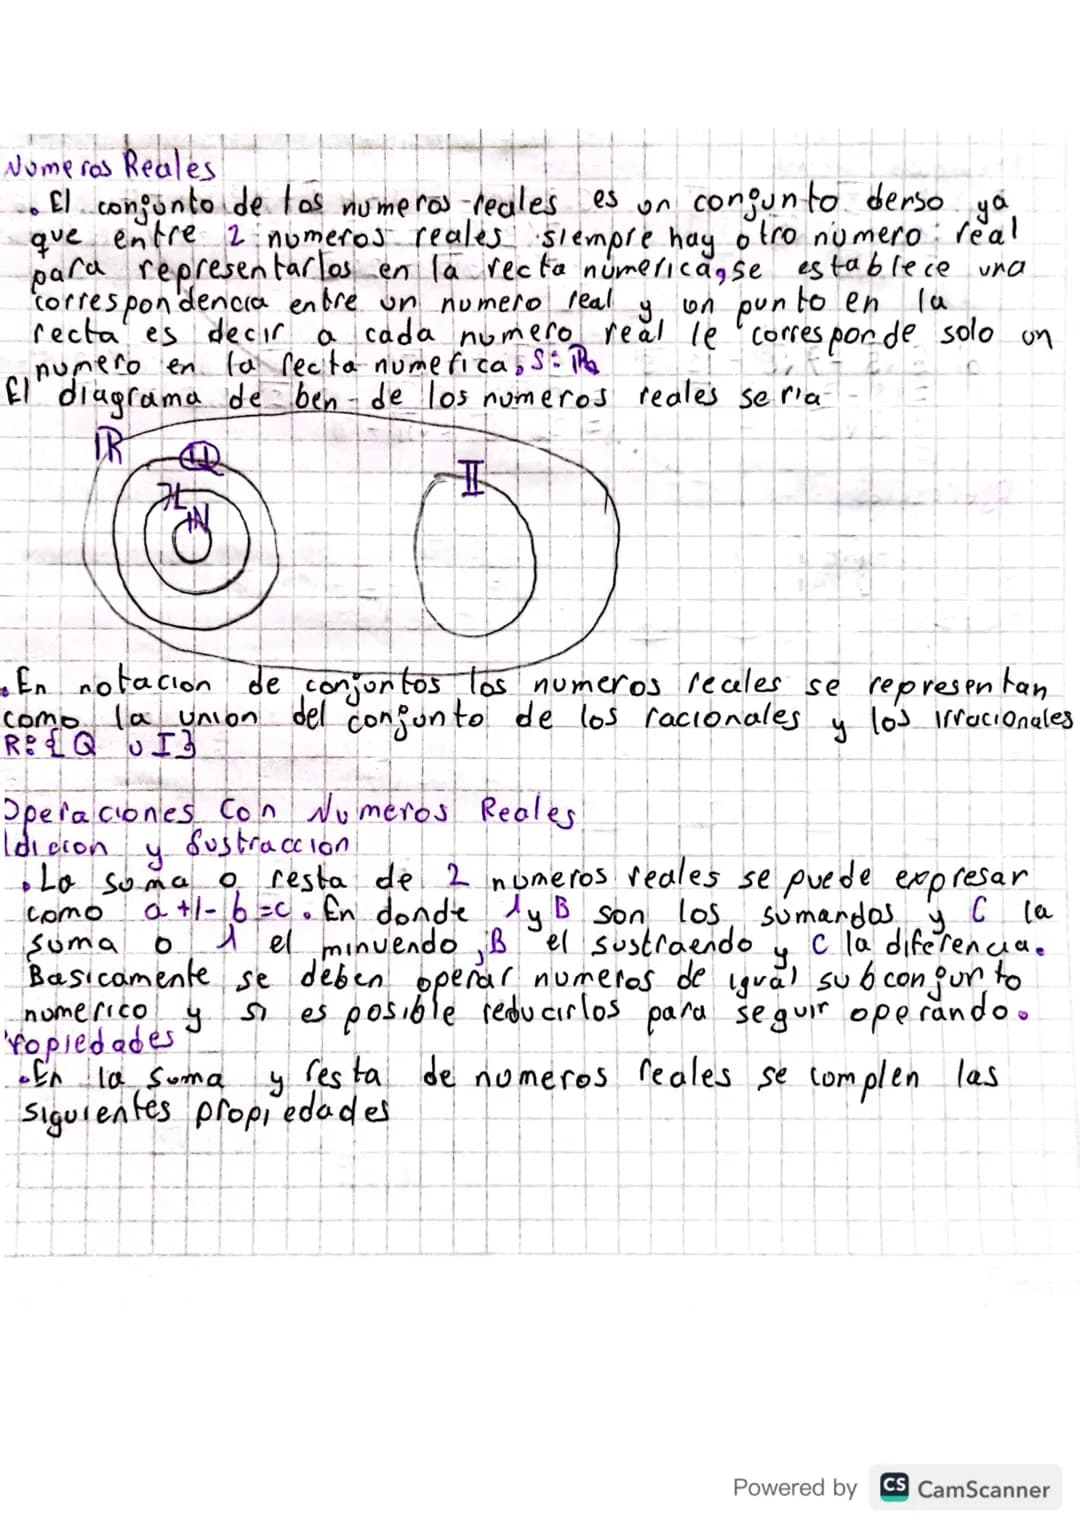 Numeros Reales
. El conjunto de los numeros reales es un conjunto denso ya
que entre 2 numeros reales siempre hay otro numero real
para representarlos en la recta numerica, se establece una
correspondencia entre un numero real y un punto en la
recta es decir a cada numero real le corresponde solo un
numero en la recta numerica, S:
El diagrama de ben de los numeros reales seria
R Q
Z
N
II
. En notacion de conjuntos los numeros reales se representan
como la union del conjunto de los racionales y los irracionales
R:{Q ∪ I}
Operaciones Con Numeros Reales
Idicion y Sustraccion
. La suma o resta de 2 numeros reales se puede expresar
como a +/- b =c. En donde A y B son los sumandos y C la
suma o A el minuendo, B el sustraendo y C la diferencia.
Basicamente se deben operar numeros de igual subconjunto
numerico y si es posible reducirlos para seguir operando.
ropiedades
. En la suma y resta de numeros reales se complen las
siguientes propiedades
Powered by CS CamScanner